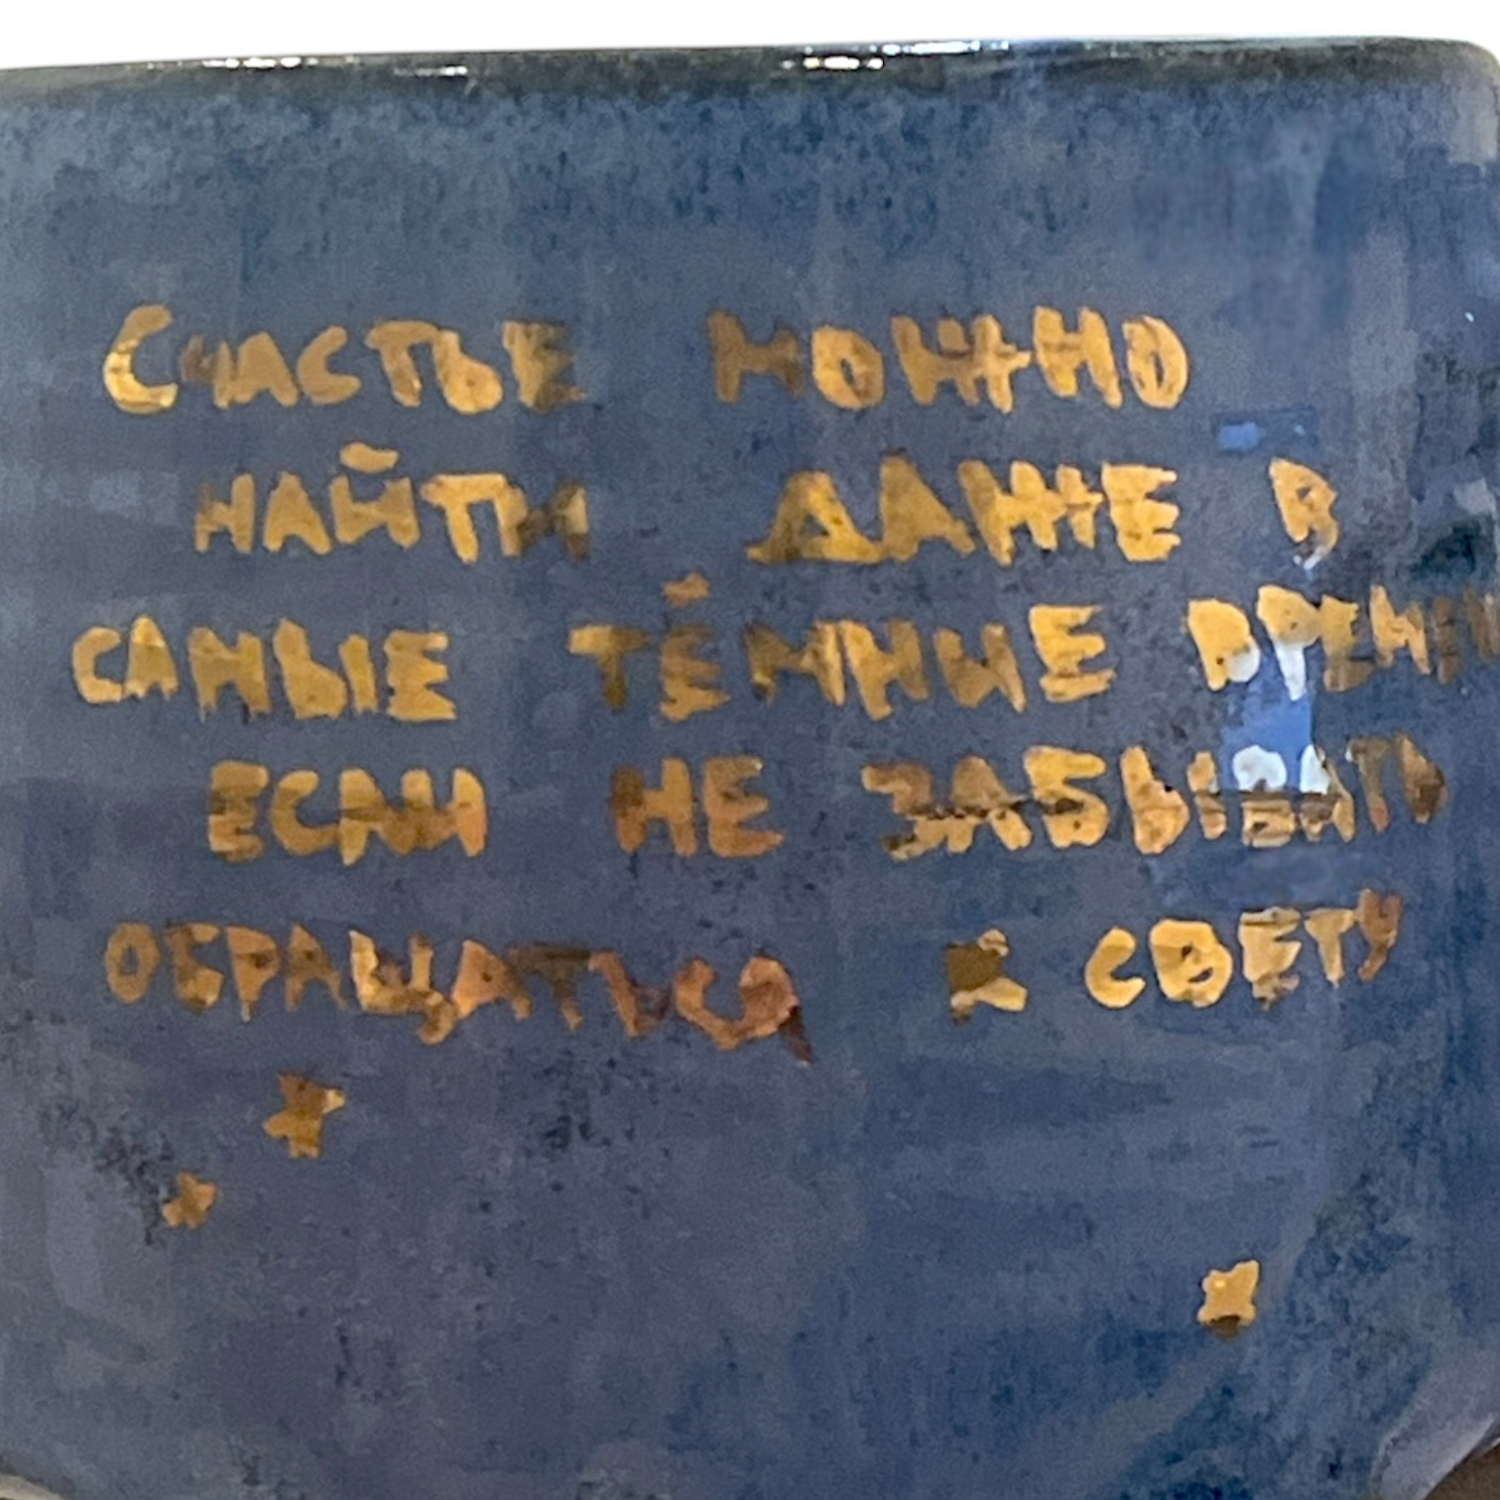 Счастье можно
найти даже в
самые тёмные времена
если не забывать
обращаться к свету